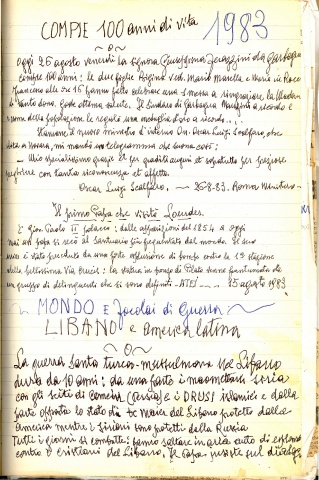 COMPIE 100 anni di vita 1983
Oggi 26 agosto venerdì la signora Giuseppina Ferazzini da Garbagna
compie 100 anni: le due figlie Regina ved. Mario Masella e Maria in Roco
Francesco alle ore 16 hanno fatto celebrare una s. messa a ringraziare la Madon
il Santo dono. Gode ottima salute. Il Sindaco di Garbagna a ricordo e
a nome della popolazione le regalò una medaglia d'oro a ricordo...
Siccome il nuovo ministro d'interno On. Oscar Luigi Scalfaro, che
vota a Novara, mi mandò un telegramma che suona così:
— Mio specialissimo grazie at per graditi auguri et soprattutto per preziose
preghiere con tanta riconoscenza et affetto.
Oscar Luigi Scalfaro, — 26-8-83. Roma Ministero —
Il primo Papa che visitò Lourdes.
È Gion Paolo II polacco: dalle apparizioni del 1854 a oggi
mai un papa si recò al Santuario più frequentato dal mondo. Il suo
è stato preceduto da una forte esplosione di bomba contro la 1ª stazione
della bellissima Via Crucis: la statua in bronzo di Pilato venne frantumata da
un gruppo di delinquenti che si sono definiti — ATEI — 15 agosto 1983
MONDO e focolai di Guerra
LIBANO e america latina
La guerra santa turca-mussulmana nel Libano
dura da 10 anni: da una parte i maomettani siria
con gli sciti di Comeini (Persia) e i DRUSI islamici e dalla
parte opposta lo stato di del Libano protetto dalla
America mentre i siriani sono protetti dalla Russia
Tutti i giorni si combatte: fanno saltare in aria auto di esplosivo
contro i cristiani del Libano. Il Papa insiste sul dialogo